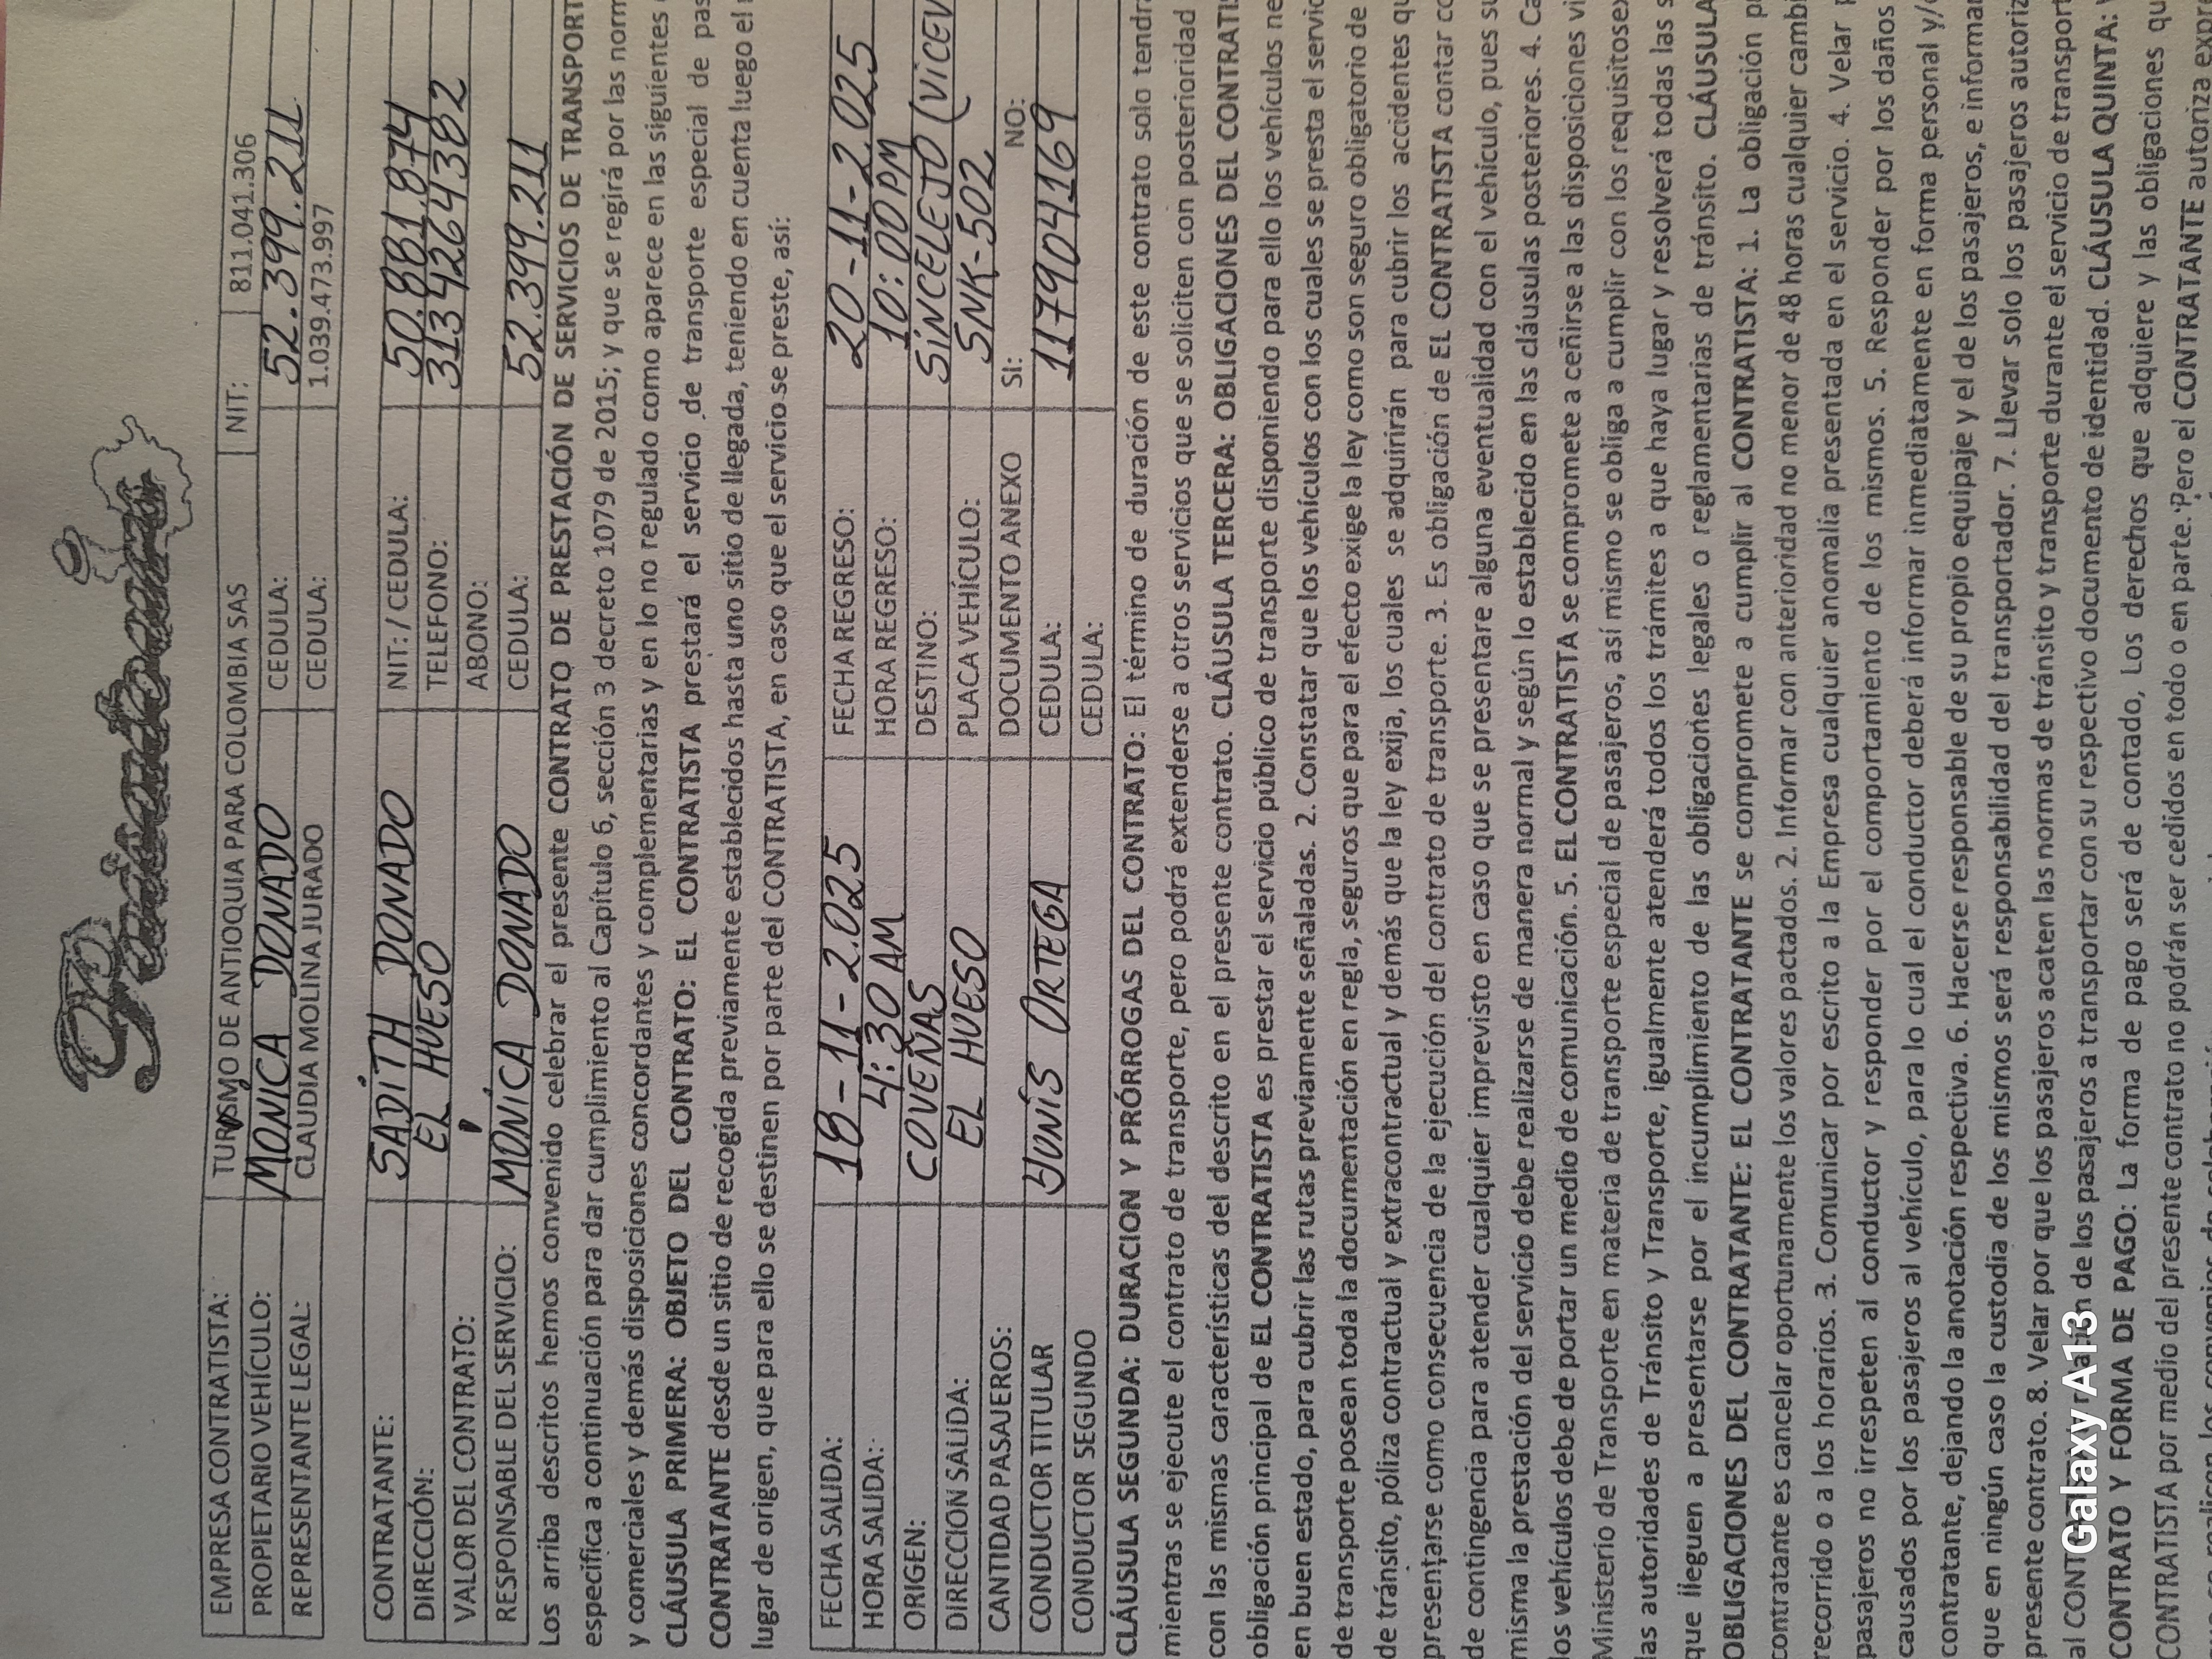 EMPRESA CONTRATISTA: TURISMO DE ANTIOQUIA PARA COLOMBIA SAS NIT: 811.041.306
PROPIETARIO VEHÍCULO: MONICA DONADO CEDULA: 52.399.211
REPRESENTANTE LEGAL: CLAUDIA MOLINA JURADO CEDULA: 1.039.473.997
CONTRATANTE: SADITH DONADO NIT: / CEDULA: 50.881.874
DIRECCIÓN: EL HUESO TELEFONO: 3134264382
VALOR DEL CONTRATO: ABONO:
RESPONSABLE DEL SERVICIO: MONICA DONADO CEDULA: 52.399.211
Los arriba descritos hemos convenido celebrar el presente CONTRATO DE PRESTACIÓN DE SERVICIOS DE TRANSPORT
especifica a continuación para dar cumplimiento al Capítulo 6, sección 3 decreto 1079 de 2015; y que se regirá por las norm
y comerciales y demás disposiciones concordantes y complementarias y en lo no regulado como aparece en las siguientes
CLÁUSULA PRIMERA: OBJETO DEL CONTRATO: EL CONTRATISTA prestará el servicio de transporte especial de pas
CONTRATANTE desde un sitio de recogida previamente establecidos hasta uno sitio de llegada, teniendo en cuenta luego el
lugar de origen, que para ello se destinen por parte del CONTRATISTA, en caso que el servicio se preste, así:
FECHA SALIDA: 18-11-2.025 FECHA REGRESO: 20-11-2.025
HORA SALIDA: 4:30 AM HORA REGRESO: 10:00 PM
ORIGEN: COVEÑAS DESTINO: SINCELEJO (VICEV
DIRECCION SALIDA: EL HUESO PLACA VEHÍCULO: SNK-502
CANTIDAD PASAJEROS: DOCUMENTO ANEXO SI: NO:
CONDUCTOR TITULAR YUNIS ORTEGA CEDULA: 117904169
CONDUCTOR SEGUNDO CEDULA:
CLÁUSULA SEGUNDA: DURACION Y PRÓRROGAS DEL CONTRATO: El término de duración de este contrato solo tendra
mientras se ejecute el contrato de transporte, pero podrá extenderse a otros servicios que se soliciten con posterioridad
con las mismas características del descrito en el presente contrato. CLÁUSULA TERCERA: OBLIGACIONES DEL CONTRATIS
obligación principal de EL CONTRATISTA es prestar el servicio público de transporte disponiendo para ello los vehículos ne
en buen estado, para cubrir las rutas previamente señaladas. 2. Constatar que los vehículos con los cuales se presta el servic
de transporte posean toda la documentación en regla, seguros que para el efecto exige la ley como son seguro obligatorio de
de tránsito, póliza contractual y extracontractual y demás que la ley exija, los cuales se adquirirán para cubrir los accidentes qu
presentarse como consecuencia de la ejecución del contrato de transporte. 3. Es obligación de EL CONTRATISTA contar co
de contingencia para atender cualquier imprevisto en caso que se presentare alguna eventualidad con el vehículo, pues su
misma la prestación del servicio debe realizarse de manera normal y según lo establecido en las cláusulas posteriores. 4. Ca
los vehículos debe de portar un medio de comunicación. 5. EL CONTRATISTA se compromete a ceñirse a las disposiciones vi
Ministerio de Transporte en materia de transporte especial de pasajeros, así mismo se obliga a cumplir con los requisitosex
las autoridades de Tránsito y Transporte, igualmente atenderá todos los trámites a que haya lugar y resolverá todas las s
que lleguen a presentarse por el incumplimiento de las obligaciones legales o reglamentarias de tránsito. CLÁUSULA
OBLIGACIONES DEL CONTRATANTE: EL CONTRATANTE se compromete a cumplir al CONTRATISTA: 1. La obligación p
contratante es cancelar oportunamente los valores pactados. 2. Informar con anterioridad no menor de 48 horas cualquier cambi
recorrido o a los horarios. 3. Comunicar por escrito a la Empresa cualquier anomalía presentada en el servicio. 4. Velar p
pasajeros no irrespeten al conductor y responder por el comportamiento de los mismos. 5. Responder por los daños
causados por los pasajeros al vehículo, para lo cual el conductor deberá informar inmediatamente en forma personal y/o
contratante, dejando la anotación respectiva. 6. Hacerse responsable de su propio equipaje y el de los pasajeros, e informar
que en ningún caso la custodia de los mismos será responsabilidad del transportador. 7. Llevar solo los pasajeros autoriz
presente contrato. 8. Velar por que los pasajeros acaten las normas de tránsito y transporte durante el servicio de transport
al CONT de los pasajeros a transportar con su respectivo documento de identidad. CLÁUSULA QUINTA: V
CONTRATO Y FORMA DE PAGO: La forma de pago será de contado, Los derechos que adquiere y las obligaciones qu
CONTRATISTA por medio del presente contrato no podrán ser cedidos en todo o en parte. Pero el CONTRATANTE autoriza expre
Galaxy A13